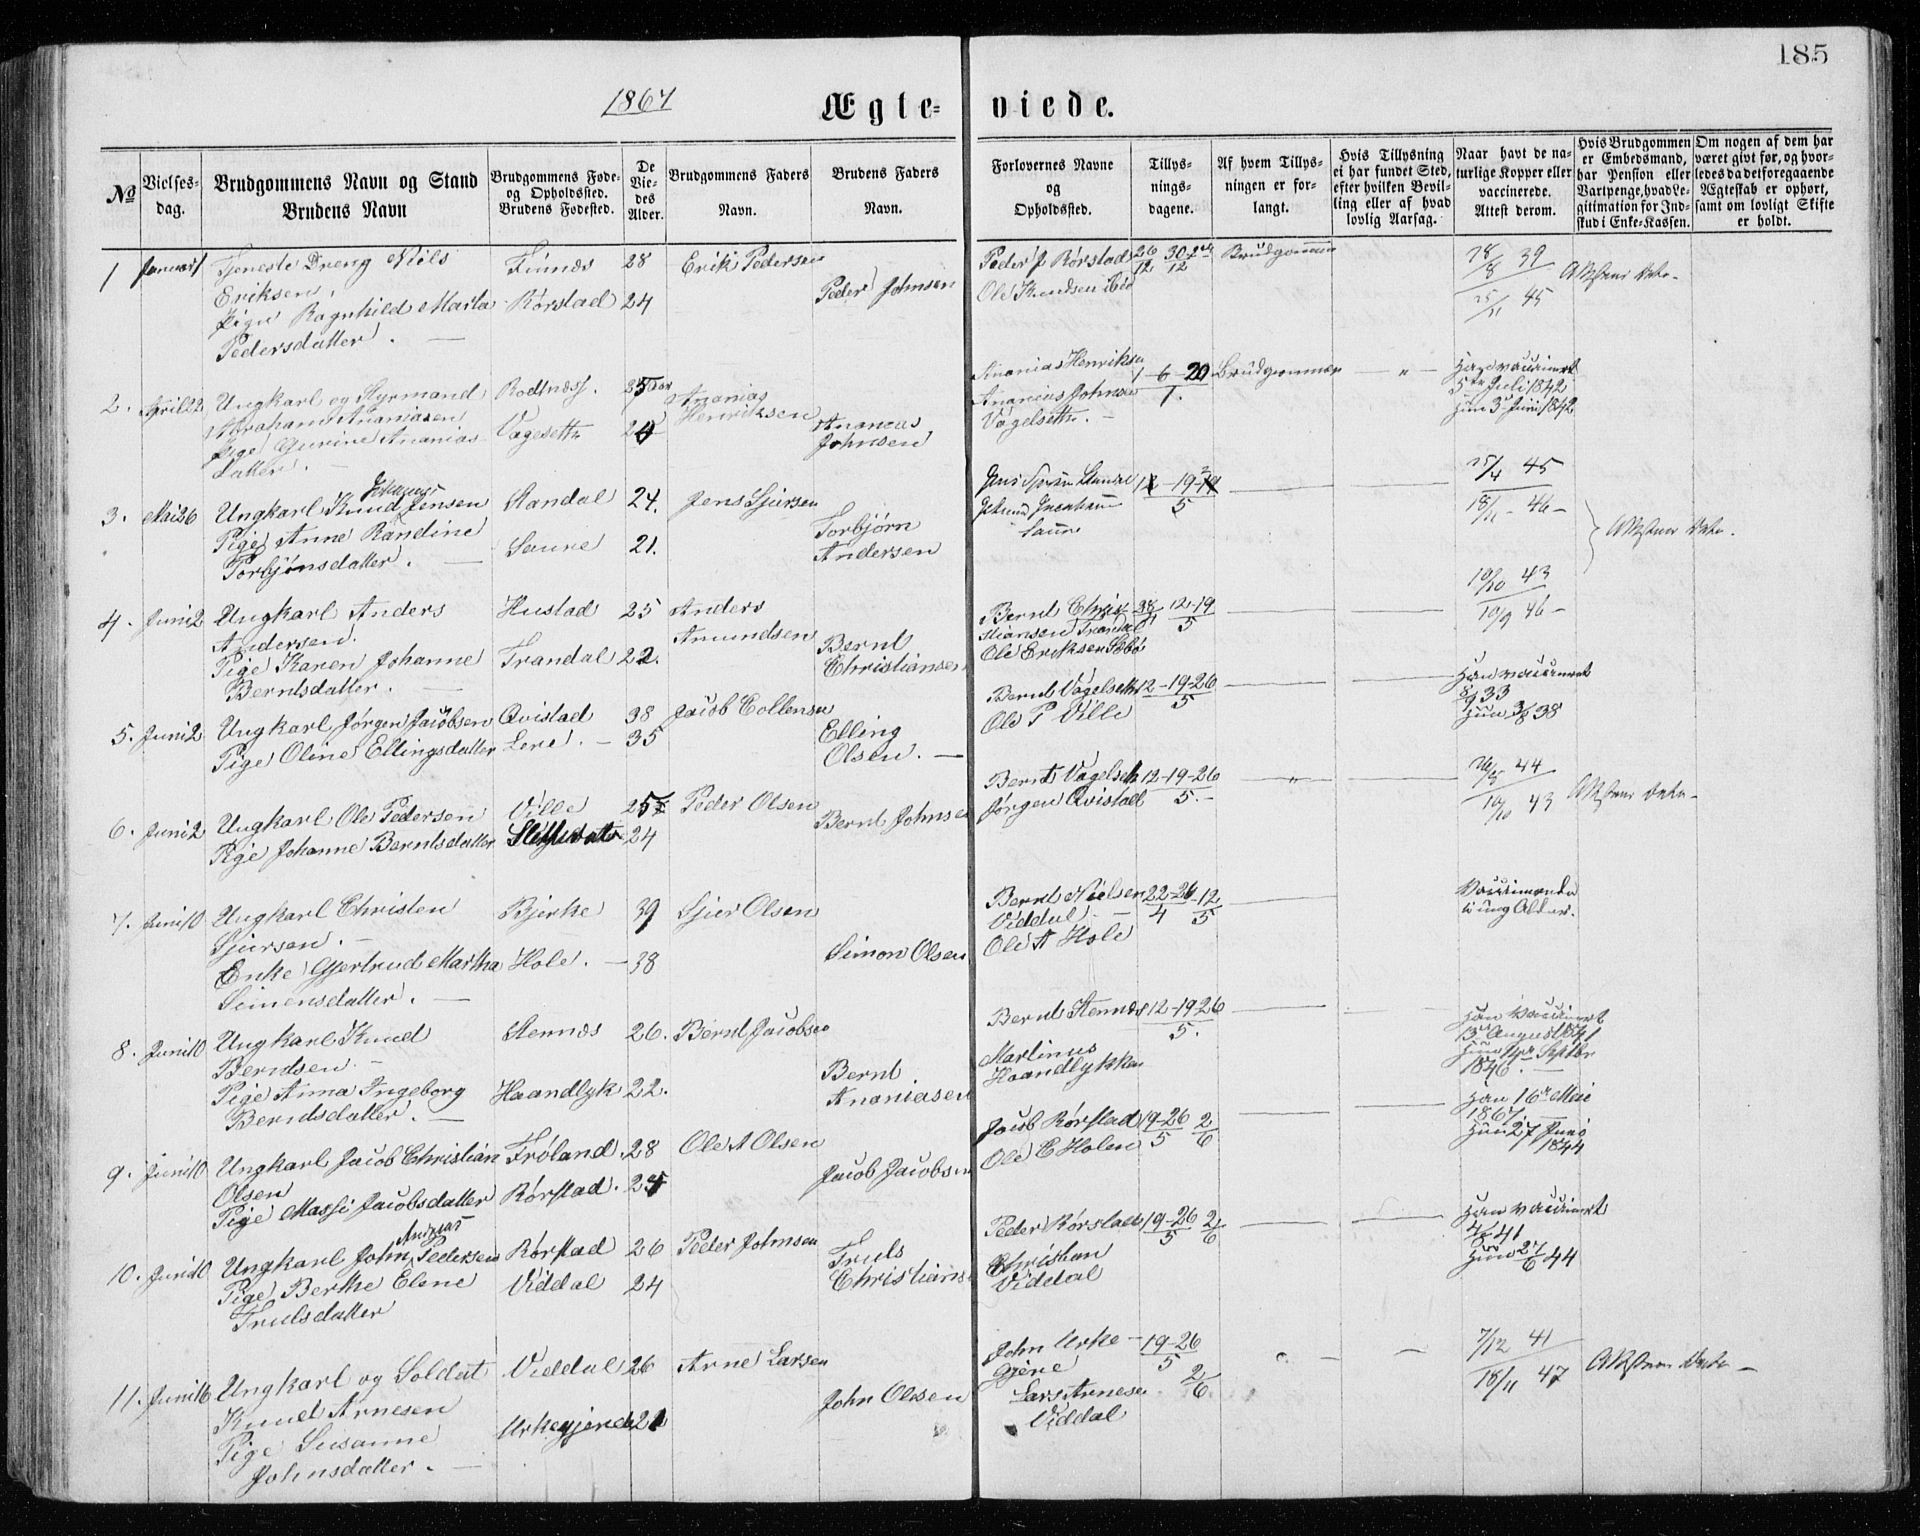 185
1867
Ægteviede.
No
Vielsesdag.
Brudgommens Navn og Stand
Brudens Navn
Brudgommens Føde- og Opholdssted.
Brudens Fødested.
De Viedes Alder.
Brudgommens Faders Navn.
Brudens Faders Navn.
Forlovernes Navne og Opholdssted.
Tillysningsdagene.
Af hvem Tillysningen er forlangt.
Hvis Tillysning ei har fundet Sted, efter hvilken Bevilling eller af hvad lovlig Aarsag.
Naar havt de naturlige Kopper eller vaccinerede. Attest derom.
Hvis Brudgommen er Embedsmand, har Pension eller Vartpenge, hvad Legitimation for Indskud i Enke-Kassen.
Om nogen af dem har været givt før, og hvorledes da det foregaaende Ægteskab er ophørt, samt om lovligt Skifte er holdt.
1 Januar 1 Tjeneste Dreng Nils Finnæs 28 Erik Pedersen Peder J Rørstad 26/12 30/12 Brudgommen 28/8 39
Eriksen, Peder Johnsen Ole Knudsen ibid
Pige Ragnhild Marta Rørstad 24 25/11 45
Pedersdatter. —
2. April 22 Ungkarl og Styrmand Ananias Ananias Henriksen 1-6-20 Brudgommen — " — Han vaccineret
Abraham Ananiasen Henriksen Ananias Ananias Johnsen 1. 5te Juli 1842
Pige Gurine Ananias- Vagesetr Johnsen Vagelsetr. Hun 3 Juni 1842
datter. —
3. Mai 26 Ungkarl Knud Jensen Standal 24. Jens Sjursen 25/4 45
Pige Anne Randine Torbjørn 5 18/11 - 46 -
Torbjønsdatter. — Saure 21. Andersen Saure
4. Juni 2 Ungkarl Anders Hustad 25 Anders Bernt Chris- 12-19 10/10 43
Andersen. Amundsen Bernt stiansen Trandal 5 10/9 46 -
Pige Karen Johanne Trandal 22. Christiansen Ole Eriksen Sæbø
Berntsdatter. —
5. Juni 2 Ungkarl Jørgen Jacobsen Qvistad 38 Jacob Bernt Vagelsetr 12-19-26 Han vaccineret
Pige Oline Ellingsdatter 35 Elling Ole P Ville 5 33
Olsen. — Hun 38
6. Juni 2 Ungkarl Ole Pedersen Ville 25 Peder Olsen Bernt Vagelsetr 12-19-26 — " — 44
Pige Johanne Berntsdatter 24 Bernt Johnsen Jørgen Qvistad 5. - 10/10 43
7. Juni 10 Ungkarl Christen Bjerke 39 Sjur Olsen Bernt Nielsen 22-26-12
Sjursen. — Viddal — 4 5 i ung Alder.
Enke Gjertrud Martha Hole. — 38 Simon Olsen Ole A Hole
Simensdatter. —
8. Juni 10 Ungkarl Knud Stennæs 26. Bernt Jacobsen Bernt Stennæs 12-19-26 Han vaccineret
Berndsen. — Bernt Martinus 5. 13 August 1841
Pige Anna Ingeborg Haandlyk 22. Ananiasen Haandlykken Septbr
Berndsdatter. — 1846. —
9. Juni 10 Ungkarl Jacob Christian Frøland. 28 Ole A Olsen Jacob Rørstad 19-26 2 Han 16de Mai
Olsen Jacob Jacobsen Ole E Holen 5 6 1867 —
Pige Massi Jacobsdatter Rørstad. Hun 27 Juni
1844
10. Juni 10 Ungkarl John Andreas Pedersen Rørstad 26 Peder Johnsen Truls Peder Rørstad 19-26 2 Han vaccineret
Pige Berthe Elene Viddal 24 Christians Christian 5 6 41
Trulsdatter Viddal Hun 27/6 44
11. Juni 16 Ungkarl og Soldat Viddal 26 Arne Larsen John Urke- 19-26 7/12 41
Knud Arnesen John Olsen gjerde 5 2 18/11 47
Pige Susanne Urkegjerde 21 Lars Arnesen 6
Johnsdatter. — Viddal